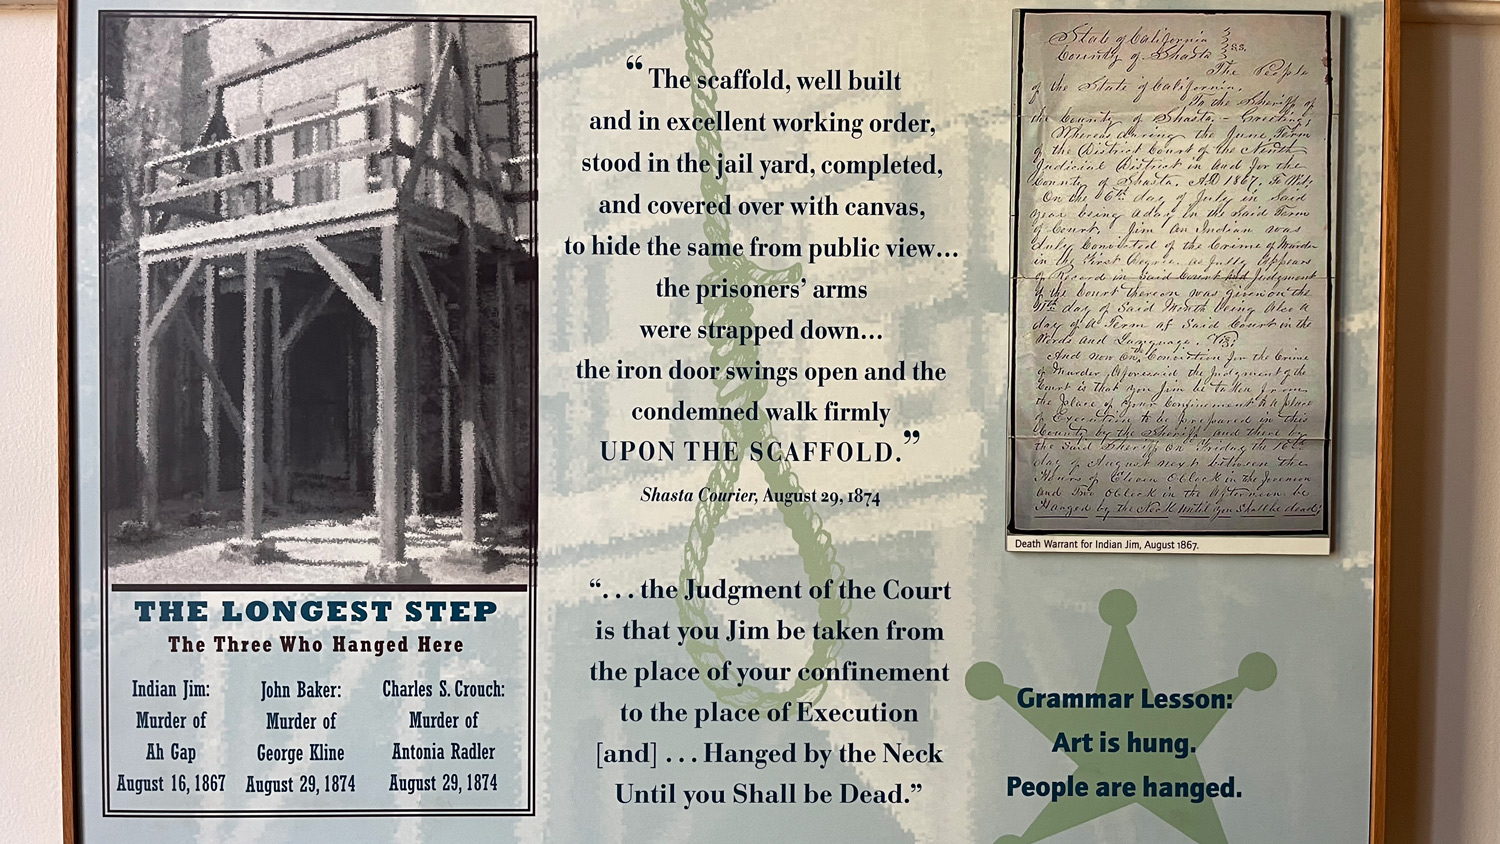 THE LONGEST STEP
The Three Who Hanged Here
Indian Jim:
Murder of
Ah Gap
August 16, 1867
John Baker:
Murder of
George Kline
August 29, 1874
Charles S. Crouch:
Murder of
Antonia Radler
August 29, 1874
“The scaffold, well built
and in excellent working order,
stood in the jail yard, completed,
and covered over with canvas,
to hide the same from public view...
the prisoners’ arms
were strapped down...
the iron door swings open and the
condemned walk firmly
UPON THE SCAFFOLD.”
Shasta Courier, August 29, 1874
“. . . the Judgment of the Court
is that you Jim be taken from
the place of your confinement
to the place of Execution
[and] . . . Hanged by the Neck
Until you Shall be Dead.”
State of California
County of Shasta } s.s.
The People
of the State of California.
To the Sheriff of
the County of Shasta - Greeting,
Whereas during the June Term
of the District Court of the Ninth
Judicial District in and for the
County of Shasta, A.D 1867, To Wit;
On the 6th day of July in Said
year being a day in the Said Term
of Court, Jim an Indian was
duly Convicted of the Crime of Murder
in the First Degree as fully appears
of Record in Said Court and Judgment
of the Court thereon was given on the
day of Said Month being also a
day of a Term of Said Court in the
Words and Language. Viz;
And now on Conviction for the Crime
of Murder, Aforesaid the Judgment of the
Court is that you Jim be taken from
the Place of your Confinement to a place
of Execution to be prepared in this
County by the Sheriff and there by
the Said Sheriff on Friday the 16th
day of August next between the
Hours of Eleven O'Clock in the forenoon
and Two O'Clock in the Afternoon be
Hanged by the Neck Until you Shall be dead;
Death Warrant for Indian Jim, August 1867.
Grammar Lesson:
Art is hung.
People are hanged.